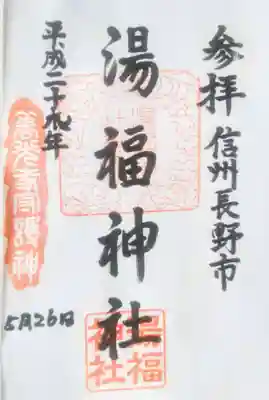 参拝 信州長野市
湯福神社
平成二十九年
5月26日
善光寺守護神
湯福
神社